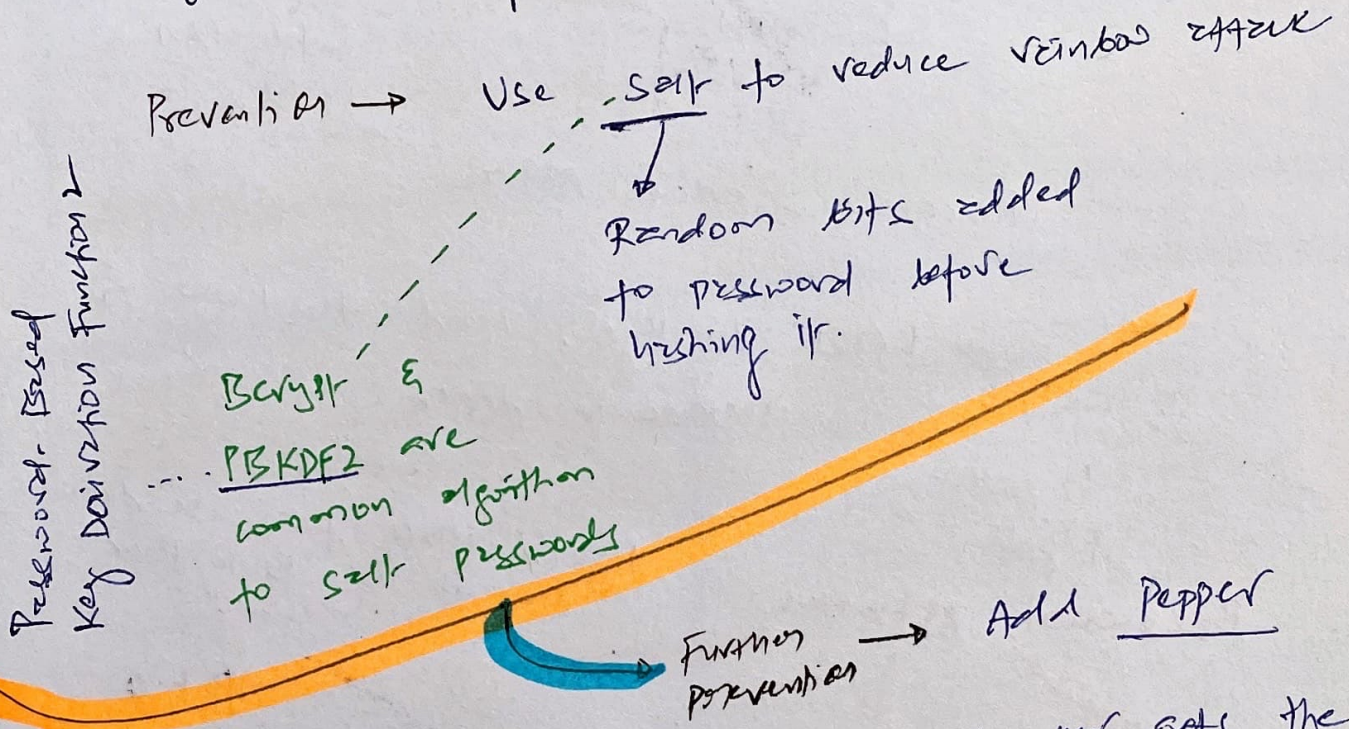 Prevention → Use salt to reduce rainbow attack
Random bits added
to password before
hashing it.
Password-Based
Key Derivation Function 2
Bcrypt &
.... PBKDF2 are
common algorithm
to salt passwords
Further
prevention → Add Pepper
gets the